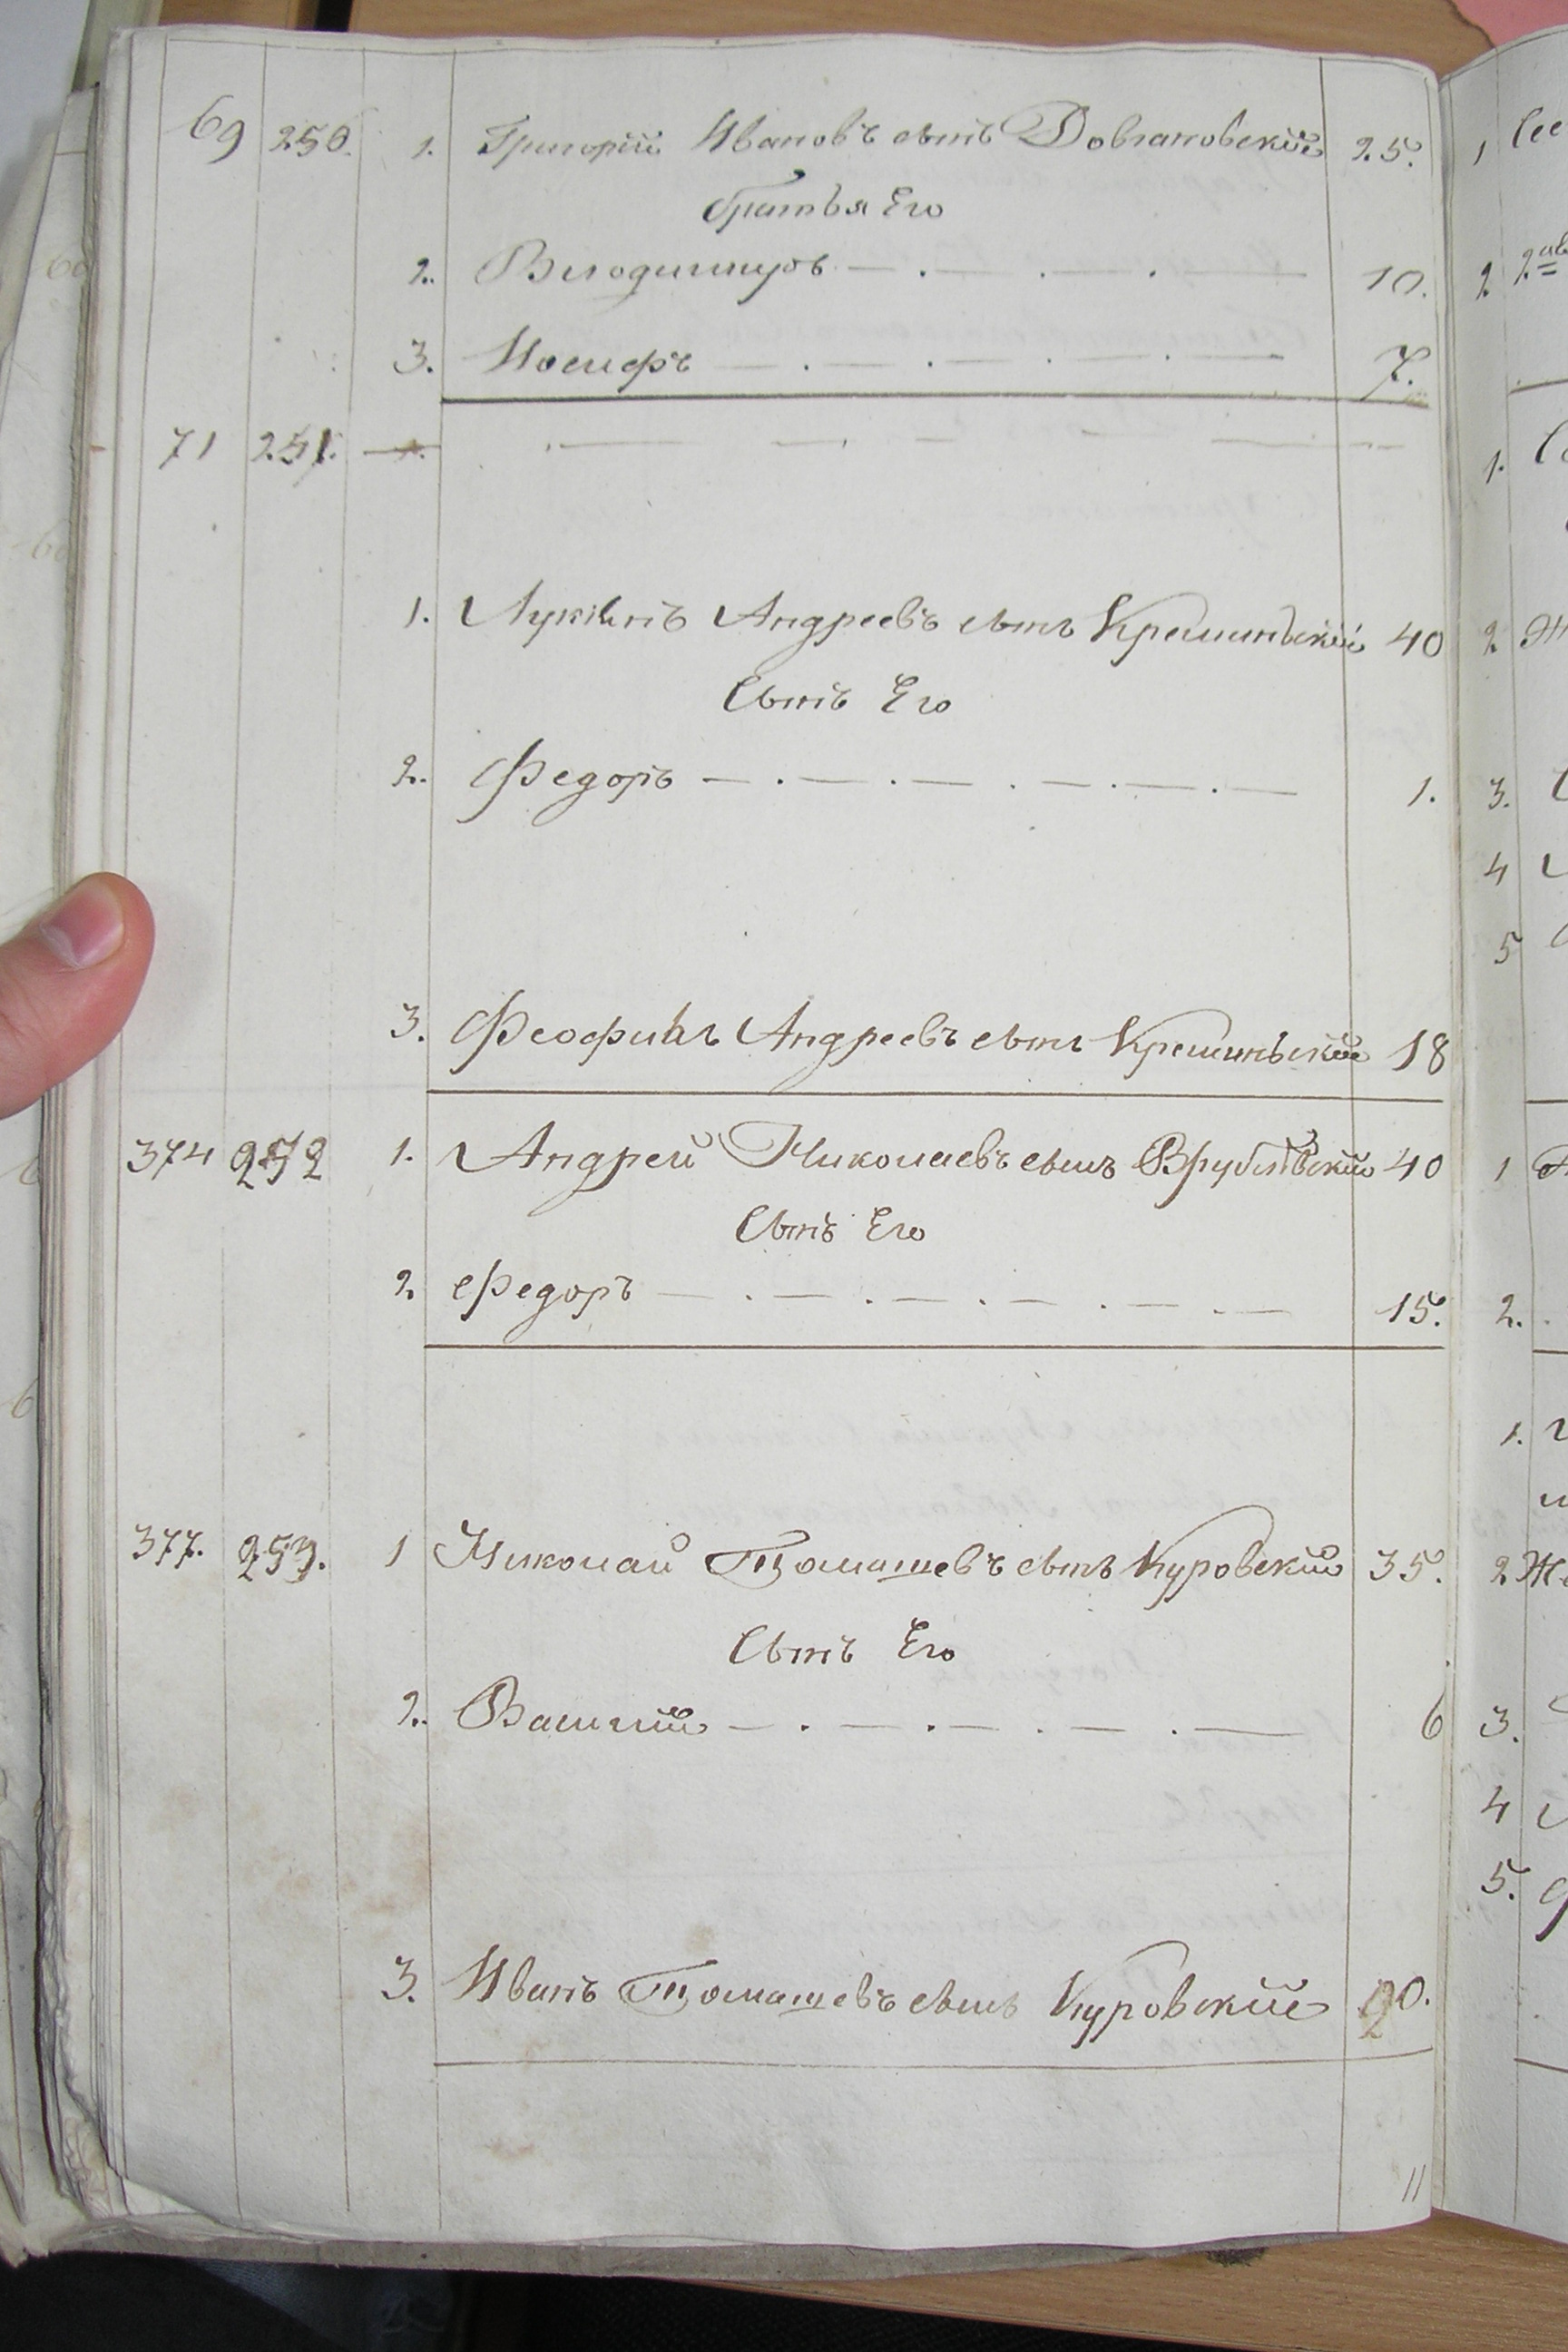 69 250. 1. Григорій Ивановъ сынъ Довгановскій 25.
братья Его
2. Влодимиръ — . — . — . — 10.
3. Іосифъ — . — . — . — . — 7.
71 251.
1. Лукіянъ Андреевъ сынъ Креминскій 40
Сынъ Его
2. Федоръ — . — . — . — . — . — 1.
3. Феофилъ Андреевъ сынъ Креминьскій 18
374 252 1. Андрей Николаевъ сынъ Врублѣвскій 40
Сынъ Его
2. Федоръ — . — . — . — . — . — 15.
377. 253. 1 Николай Томашевъ сынъ Куровскій 35.
Сынъ Его
2. Василій — . — . — . — . — 6
3. Иванъ Томашевъ сынъ Куровскій 20.
11
1
2
1.
2
3.
4
5
1
2.
1.
2
3.
4
5.